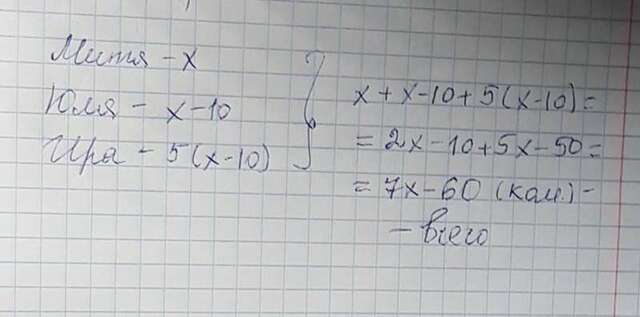 Митя - x
Юля - x-10
Ира - 5(x-10)
x+x-10+5(x-10)=
=2x-10+5x-50=
=7x-60 (кам.)-
- всего